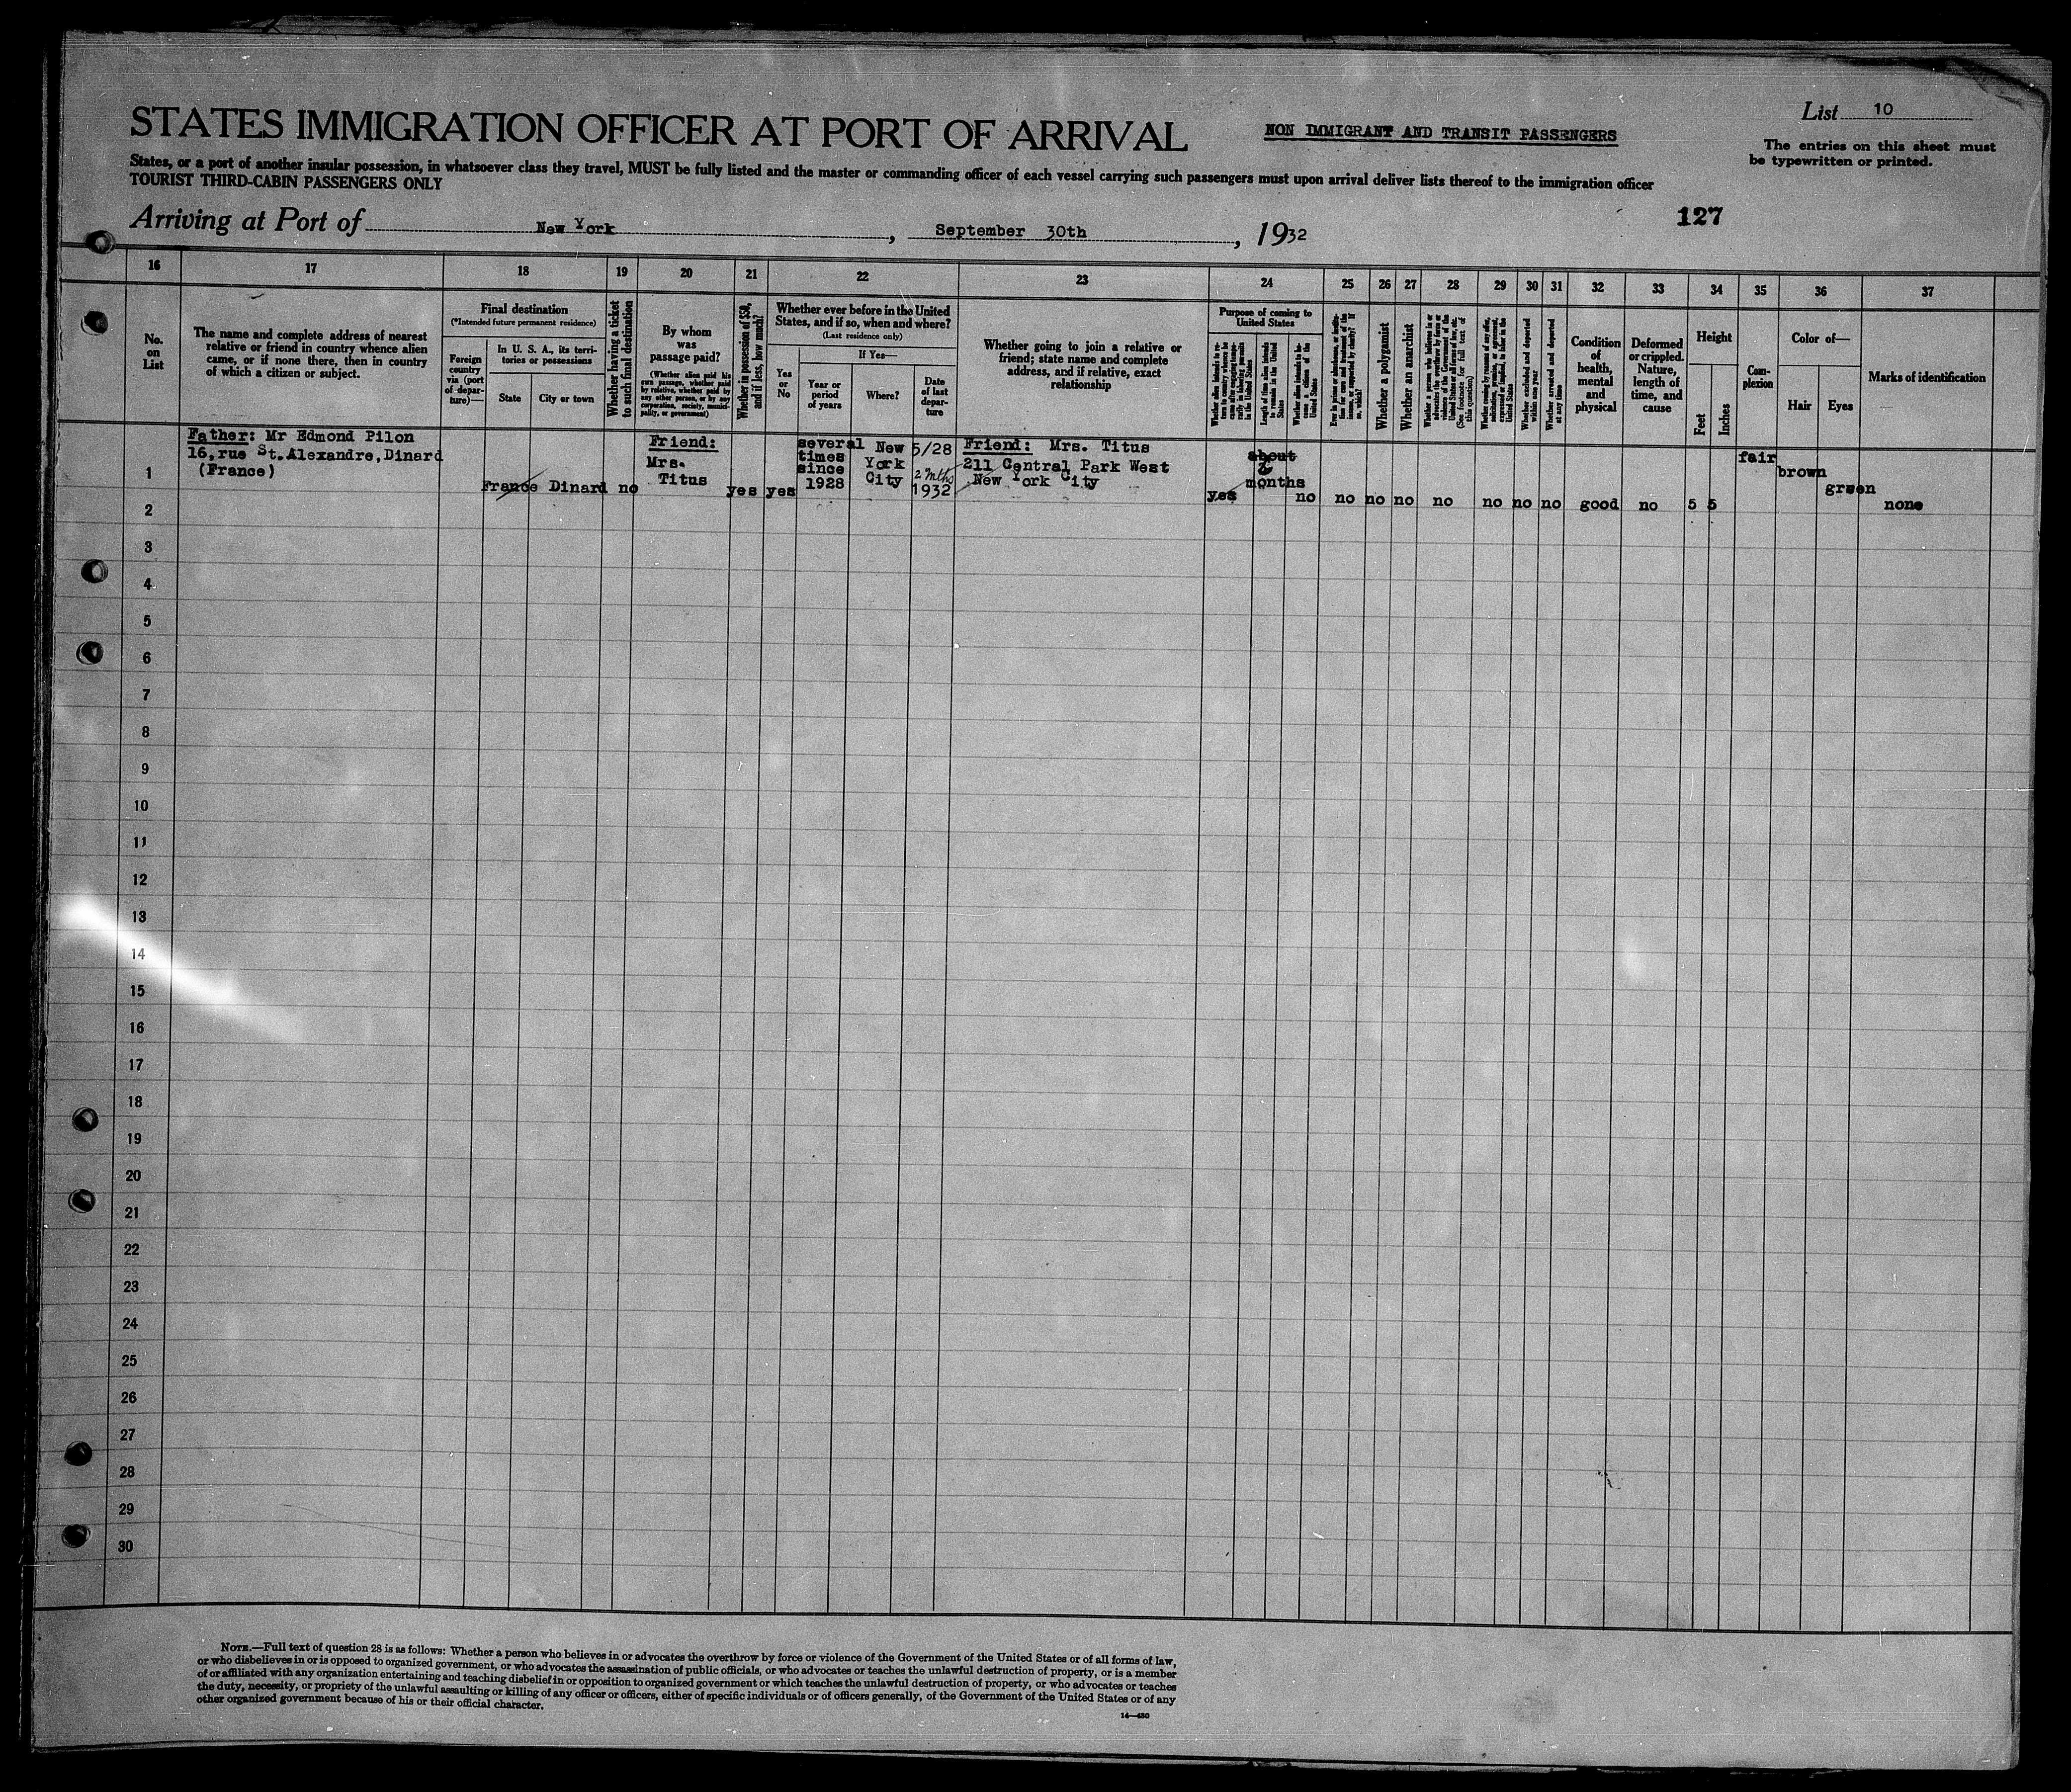 List 10
STATES IMMIGRATION OFFICER AT PORT OF ARRIVAL
NON IMMIGRANT AND TRANSIT PASSENGERS
The entries on this sheet must
be typewritten or printed.
States, or a port of another insular possession, in whatsoever class they travel, MUST be fully listed and the master or commanding officer of each vessel carrying such passengers must upon arrival deliver lists thereof to the immigration officer
TOURIST THIRD-CABIN PASSENGERS ONLY
127
Arriving at Port of New York, September 30th, 1932
16 17 18 19 20 21 22 23 24 25 26 27 28 29 30 31 32 33 34 35 36 37
No.
on
List
The name and complete address of nearest
relative or friend in country whence alien
came, or if none there, then in country
of which a citizen or subject.
Final destination
(*Intended future permanent residence)
Foreign
country
via (port
of depar-
ture)—
In U. S. A., its terri-
tories or possessions
State
City or town
Whether having a ticket
to such final destination
By whom
was
passage paid?
(Whether alien paid his
own passage, whether paid
by relative, whether paid by
any other person, or by any
corporation, society, munici-
pality, or government)
Whether in possession of $50,
and if less, how much?
Whether ever before in the United
States, and if so, when and where?
(Last residence only)
Yes
or
No
If Yes—
Year or
period
of years
Where?
Date
of last
depar-
ture
Whether going to join a relative or
friend; state name and complete
address, and if relative, exact
relationship
Purpose of coming to
United States
Length of time alien intends
to remain in the United
States
Whether alien intends to be-
come a citizen of the
United States
Whether a polygamist
Whether an anarchist
(See footnote for full text of
this question)
Whether excluded and deported
within one year
Whether arrested and deported
at any time
Condition
of
health,
mental
and
physical
Deformed
or crippled.
Nature,
length of
time, and
cause
Height
Feet
Inches
Com-
plexion
Color of—
Hair
Eyes
Marks of identification
Father: Mr Edmond Pilon
16, rue St. Alexandre, Dinard
(France)
France Dinard no
Friend:
Mrs.
Titus
yes yes
several
times
since
1928
New
York
City
5/28
2 mths
1932
Friend: Mrs. Titus
211 Central Park West
New York City
yes
about
months
no no no no no no no no good no 5 5
fair
brown
green
none
1
2
3
4
5
6
7
8
9
10
11
12
13
14
15
16
17
18
19
20
21
22
23
24
25
26
27
28
29
30
NOTE.—Full text of question 28 is as follows: Whether a person who believes in or advocates the overthrow by force or violence of the Government of the United States or of all forms of law,
or who disbelieves in or is opposed to organized government, or who advocates the assassination of public officials, or who advocates or teaches the unlawful destruction of property, or is a member
of or affiliated with any organization entertaining and teaching disbelief in or opposition to organized government or which teaches the unlawful destruction of property, or who advocates or teaches
the duty, necessity, or propriety of the unlawful assaulting or killing of any officer or officers, either of specific individuals or of officers generally, of the Government of the United States or of any
other organized government because of his or their official character.
14—430